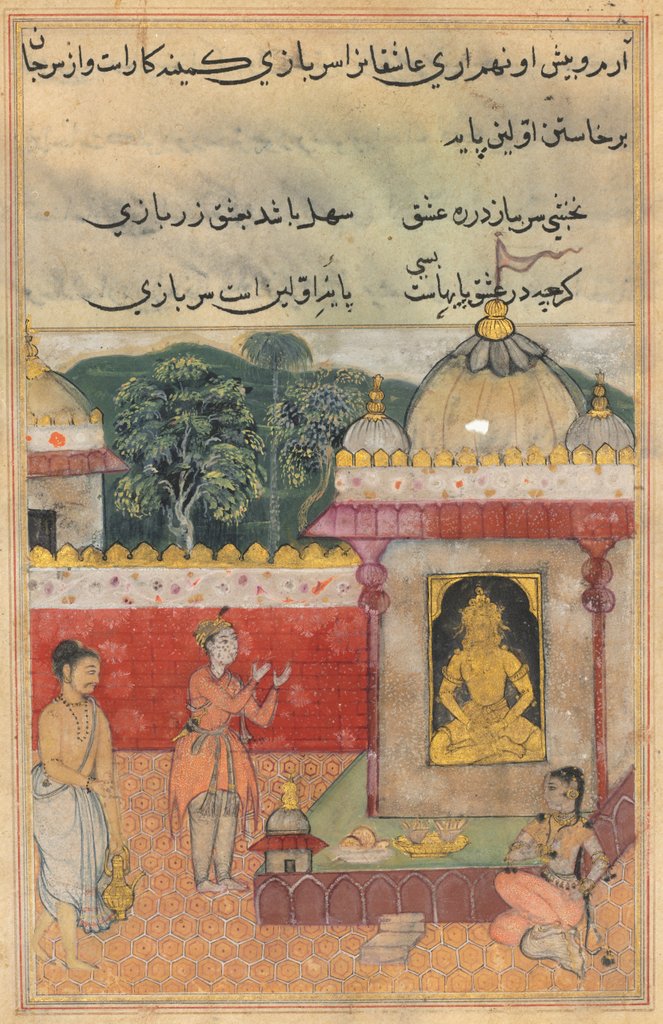 آرم و پیش او نهم اری عاشقانرا سربازی کمینه کار است و از سر جان
برخاستن اوّلین پایه
نخشبی سر بباز در ره عشق سهل باشد بعشق زر بازی
کرچه در عشق پایهاست بسی پایهٔ اوّلین است سر بازی